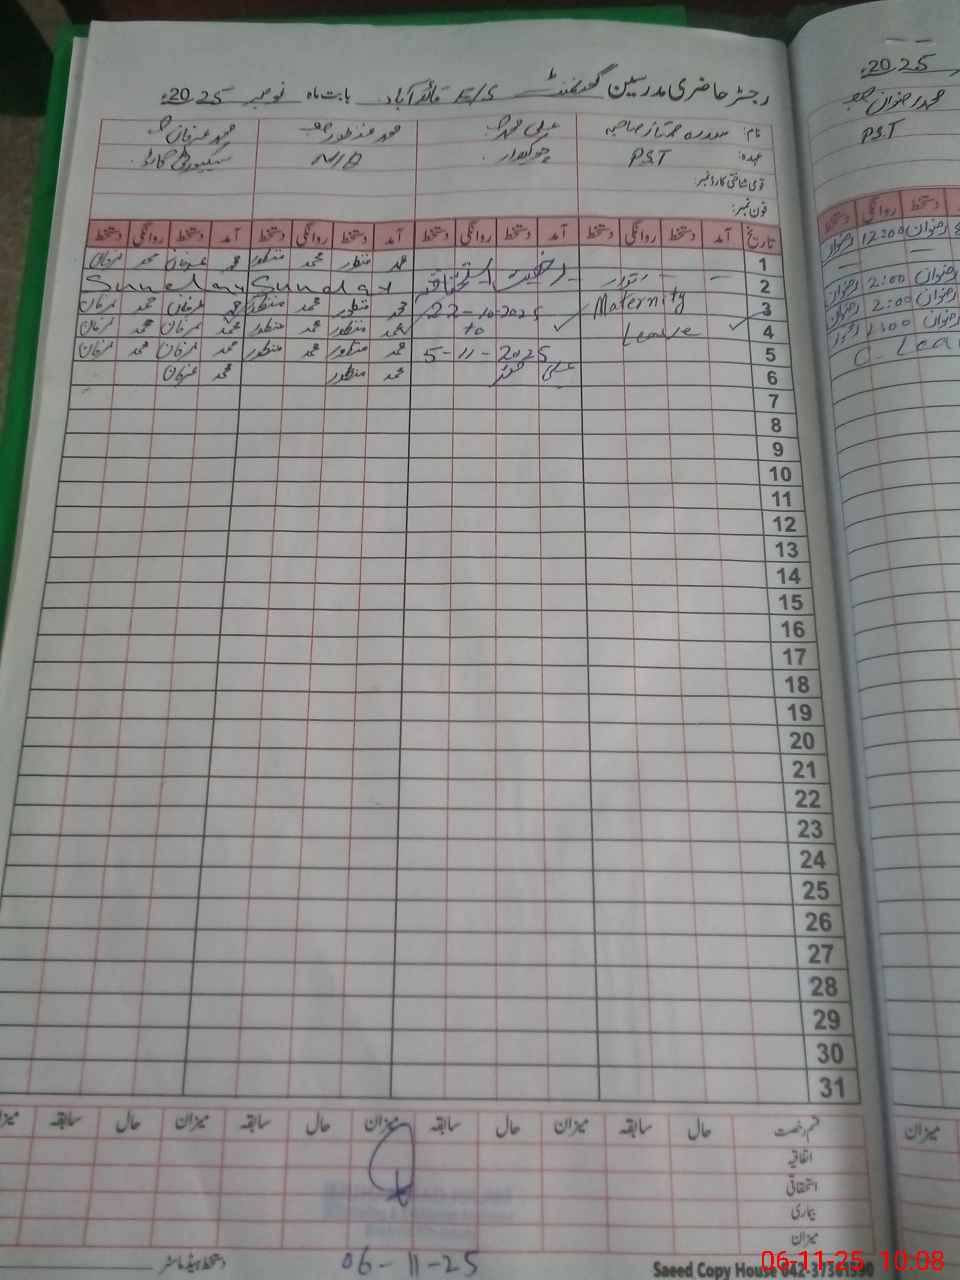 رجسٹر حاضری مدرسین گورنمنٹ E/S قائد آباد بابت ماہ نومبر 2025ء
نام: سدرہ ممتاز صاحبہ علی محمد محمد منظور محمد عرفان
عہدہ: P.S.T چوکیدار N/Q سیکیورٹی گارڈ
قومی شناختی کارڈ نمبر:
فون نمبر:
تاریخ آمد دستخط روانگی دستخط آمد دستخط روانگی دستخط آمد دستخط روانگی دستخط آمد دستخط روانگی دستخط
1 محمد منظور محمد منظور محمد عرفان محمد عرفان
2 رخصت استحقاقیہ Sunday Sunday
3 Maternity 22-10-2025 محمد منظور محمد منظور محمد عرفان محمد عرفان
4 Leave to محمد منظور محمد منظور محمد عرفان محمد عرفان
5 5-11-2025 محمد منظور محمد منظور محمد عرفان محمد عرفان
6 علی محمد محمد منظور محمد عرفان
7
8
9
10
11
12
13
14
15
16
17
18
19
20
21
22
23
24
25
26
27
28
29
30
31
قسم رخصت حال سابقہ میزان حال سابقہ میزان حال سابقہ میزان حال سابقہ میزان
اتفاقیہ
استحقاقی
بیماری
میزان
دستخط ہیڈ ماسٹر
06-11-25
Saeed Copy House 042-37361590
06-11-25 10:08
2025ء
محمد رضوان
P.S.T
دستخط روانگی دستخط
رضوان 12:00 رضوان
رضوان 2:00 رضوان
رضوان 2:00 رضوان
رضوان
C. Leave
میزان